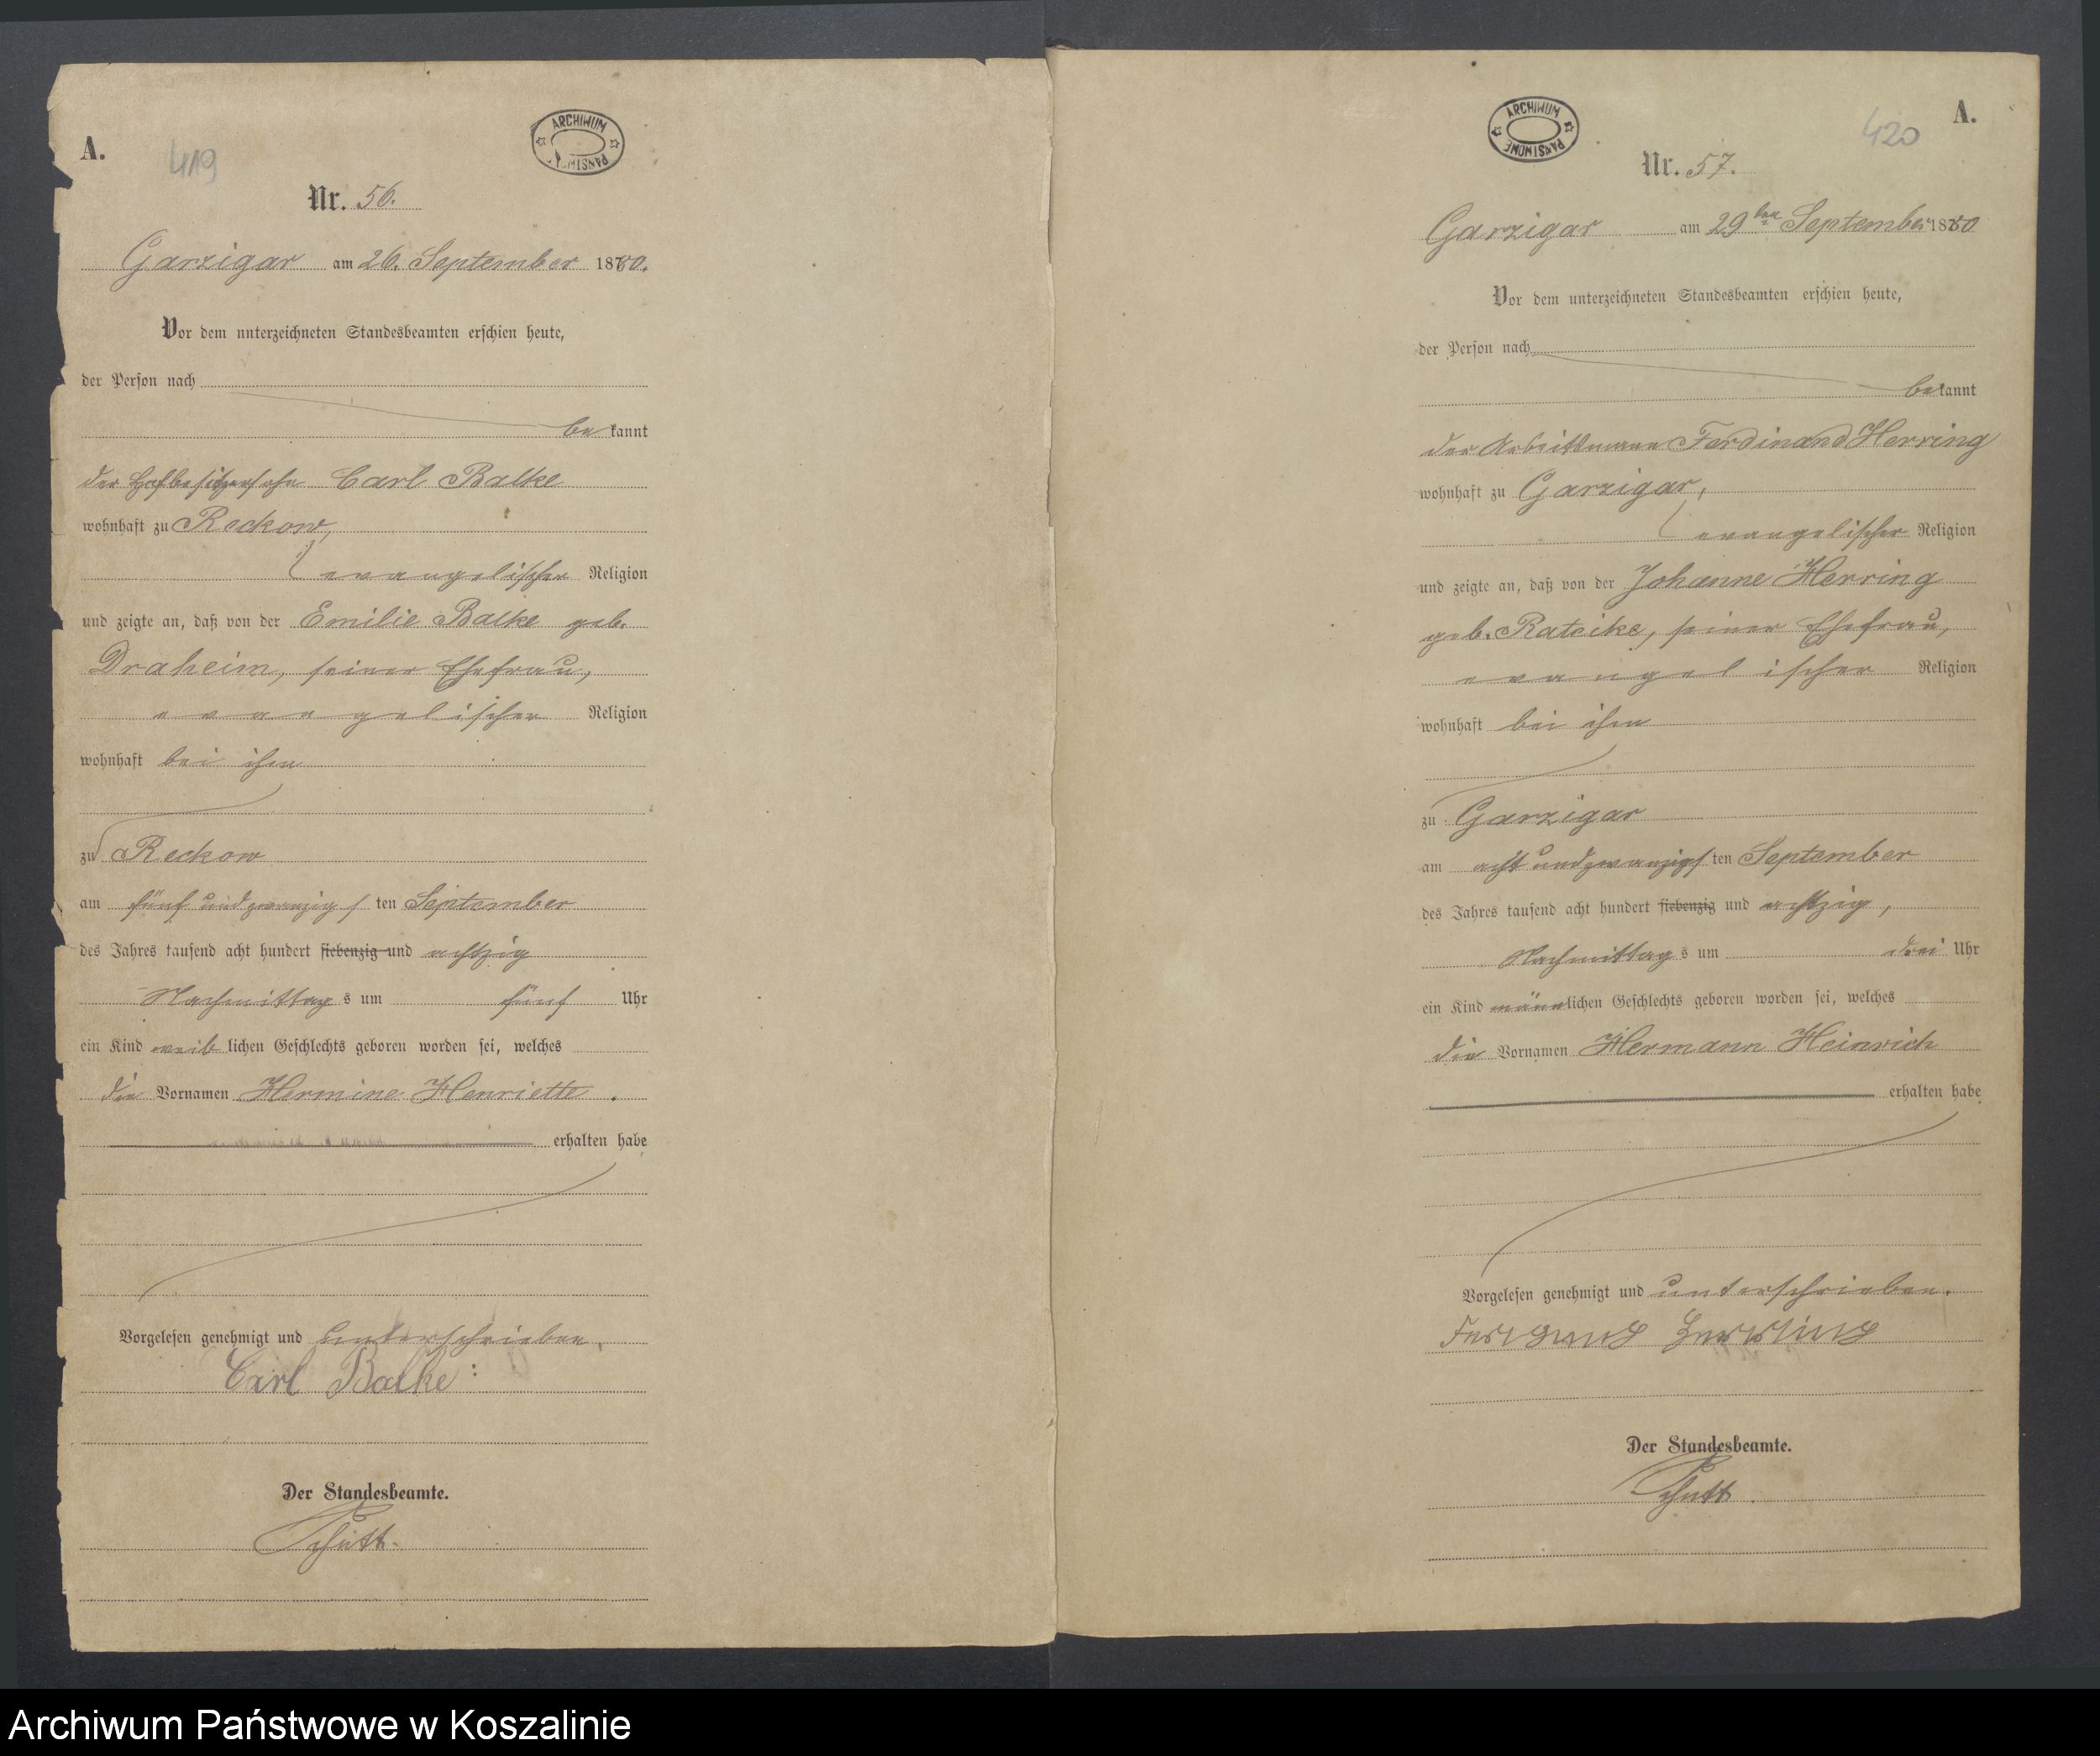 A.
419
ARCHIWUM
PAŃSTW
Nr. 56.
Garzigar am 26. September 1880.
Vor dem unterzeichneten Standesbeamten erschien heute,
der Person nach
bekannt
der Hofbesitzersohn Carl Balke
wohnhaft zu Reckow,
evangelischer Religion
und zeigte an, daß von der Emilie Balke geb.
Draheim, seiner Ehefrau,
evangelischer Religion
wohnhaft bei ihm
zu Reckow
am fünf und zwanzigsten September
des Jahres tausend acht hundert siebenzig und achtzig
Nachmittags um fünf Uhr
ein Kind weiblichen Geschlechts geboren worden sei, welches
die Vornamen Hermine Henriette.
erhalten habe
Vorgelesen genehmigt und unterschrieben.
Carl Balke
Der Standesbeamte.
ARCHIWUM
PAŃSTWOWE
420
A.
Nr. 57.
Garzigar am 29ten September 1880
Vor dem unterzeichneten Standesbeamten erschien heute,
der Person nach
bekannt
der Arbeitsmann Ferdinand Herring
wohnhaft zu Garzigar,
evangelischer Religion
und zeigte an, daß von der Johanne Herring
geb. Rateike, seiner Ehefrau,
evangelischer Religion
wohnhaft bei ihm
zu Garzigar
am acht und zwanzigsten September
des Jahres tausend acht hundert siebenzig und achtzig,
Nachmittags um drei Uhr
ein Kind männlichen Geschlechts geboren worden sei, welches
die Vornamen Hermann Heinrich
erhalten habe
Vorgelesen genehmigt und unterschrieben.
Der Standesbeamte.
Archiwum Państwowe w Koszalinie